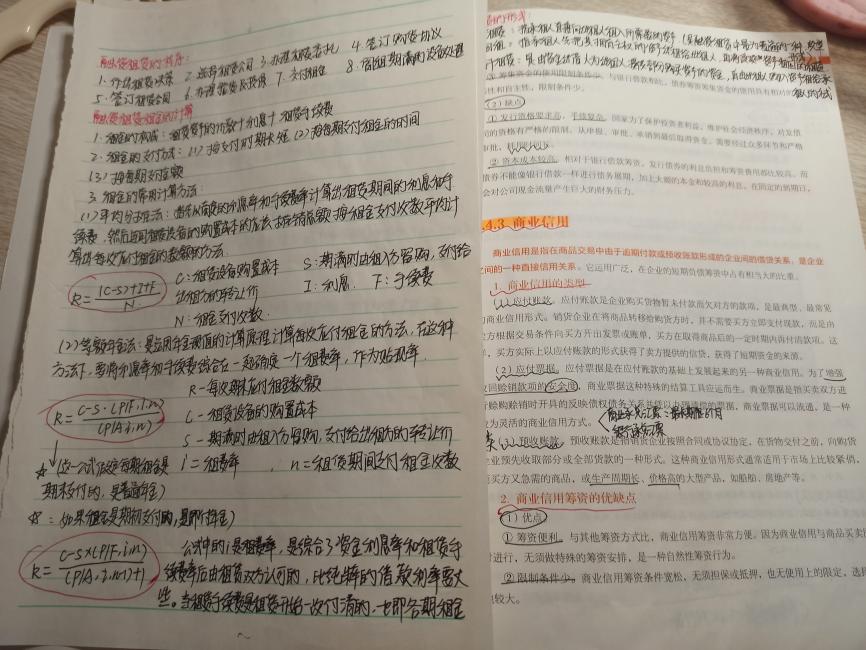 融资租赁的程序：
1. 作出租赁决策 2. 选择租赁公司 3. 办理租赁委托 4. 签订购货协议
5. 签订租赁合同 6. 办理验货及投保 7. 交付租金 8. 租赁期满的设备处理
融资租赁租金的计算
1. 租金的构成：租赁资产的价款+利息+租赁手续费
2. 租金的支付方法：(1) 按支付时期长短 (2) 按每期支付租金的时间
(3) 按每期支付金额
3. 租金的常用计算方法：
(1) 平均分摊法：先以商定的利息率和手续费率计算出租赁期间的利息和手
续费，然后连同租赁设备的购置成本的应该摊销总额按租金支付次数平均计
算出每次应付租金的数额的方法.
R=((C-S)+I+F)/N
C：租赁设备购置成本 S：期满时由租入方留购，支付给
出租方的转让价 I：利息 F：手续费
N：租金支付次数.
(2) 等额年金法：是运用年金现值的计算原理计算每次应付租金的方法，在这种
方法下，要将利息率和手续费综合在一起确定一个租费率，作为贴现率.
R-每次期末应付租金数额
R=(C-S·(P/F,i,n))/(P/A,i,n)
C-租赁设备的购置成本
S-期满时由租入方留购，支付给出租方的转让价
☆(这一公式假定每期租金是 i=租费率 n=租赁期间支付租金次数
期末支付的，是普通年金)
☆：如果租金是期初支付的，是即付年金)
R=(C-S×(P/F,i,n))/((P/A,i,n-1)+1)
公式中的i是租费率，是综合了资金利息率和租赁手
续费率后由租赁双方认可的，比纯粹的借款利率要大
些。当租赁手续费是租赁开始一次付清的，也即各期租金
① 筹集资金的使用限制条件少。与银行借款相比，债券筹资筹集资金的使用具有相对的
性和自主性，限制条件少。
（2）缺点
① 发行资格要求高，手续复杂。国家为了保护投资者利益，维护社会经济秩序，对发债
的资格有严格的限制。从申报、审批、承销到最后取得资金，需要经过众多环节和严格
审批，
② 资本成本较高。相对于银行借款筹资，发行债券的利息负担和筹资费用都比较高。而
债券不能像银行借款一样进行债务展期，加上大额的本金和较高的利息，在固定的到期日，
会对公司现金流量产生巨大的财务压力。
4.3 商业信用
商业信用是指在商品交易中由于延期付款或预收账款形成的企业间的借贷关系，是企业
之间的一种直接信用关系。它运用广泛，在企业的短期负债筹资中占有相当大的比重。
1. 商业信用的类型
（1）应付账款。应付账款是企业购买货物暂未付款而欠对方的款项，是最典型、最常见
的商业信用形式。销货企业在将商品转移给购货方时，并不需要买方立即支付现款，而是由
方根据交易条件向买方开出发票或账单，买方在取得商品后的一定时期内再付清款项。这
，买方实际上以应付账款的形式获得了卖方提供的信贷，获得了短期资金的来源。
（2）应付票据。应付票据是在应付账款的基础上发展起来的另一种商业信用。为了增强
收回赊销款项的安全度，商业票据这种特殊的结算工具应运而生。商业票据是指买卖双方进
行赊购赊销时开具的反映债权债务关系并凭以办理清偿的票据，商业票据可以流通，是一种
为灵活的商业信用方式。 商业承兑汇票：最长期限6个月
银行承兑汇票
预收账款。预收账款是指销货企业按照合同或协议约定，在货物交付之前，向购货
业预先收取部分或全部货款的一种形式。这种商业信用形式通常适用于市场上比较紧俏，
买方又急需的商品，或生产周期长、价格高的大型产品，如船舶、房地产等。
2. 商业信用筹资的优缺点
（1）优点
① 筹资便利。与其他筹资方式比，商业信用筹资非常方便。因为商业信用与商品买卖
时进行，无须做特殊的筹资安排，是一种自然性筹资行为。
② 限制条件少。商业信用筹资条件宽松，无须担保或抵押，也无使用上的限定，选择
也较大。